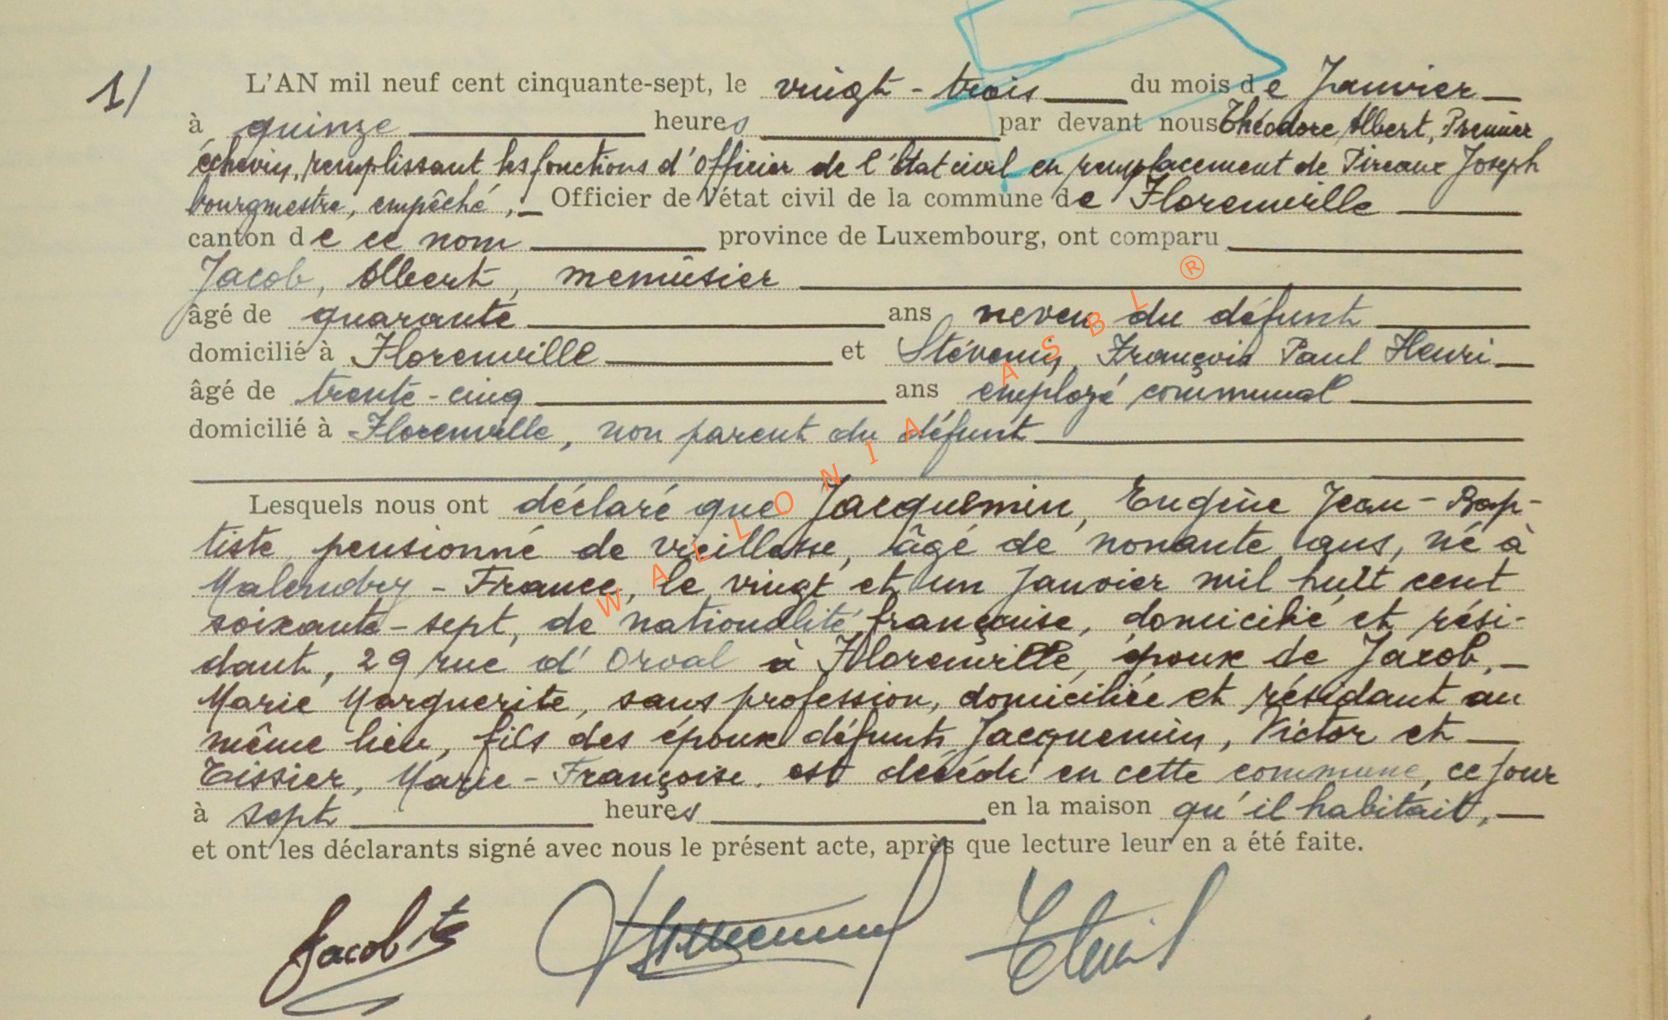 1/ L'AN mil neuf cent cinquante-sept, le vingt-trois du mois de Janvier
à quinze heures par devant nous Théodore Albert, Premier
échevin, remplissant les fonctions d'Officier de l'Etat civil en remplacement de Pireaux Joseph
bourgmestre, empêché, Officier de l'état civil de la commune de Florenville
canton de ce nom province de Luxembourg, ont comparu
Jacob, Albert, menuisier
âgé de quarante ans neveu du défunt
domicilié à Florenville et Stévenin, François Paul Henri
âgé de trente-cinq ans employé communal
domicilié à Florenville, non parent du défunt
Lesquels nous ont déclaré que Jacquemin, Eugène Jean-Bap-
tiste, pensionné de vieillesse, âgé de nonante ans, né à
Malandry - France, le vingt et un Janvier mil huit cent
soixante-sept, de nationalité française, domicilié et rési-
dant, 29 rue d'Orval à Florenville, époux de Jacob,
Marie Marguerite, sans profession, domiciliée et résidant au
même lieu, fils des époux défunts Jacquemin, Victor et
Tissier, Marie-Françoise. est décédé en cette commune, ce jour
à sept heures en la maison qu'il habitait,
et ont les déclarants signé avec nous le présent acte, après que lecture leur en a été faite.
Jacob
WALLONIA ASBL ®